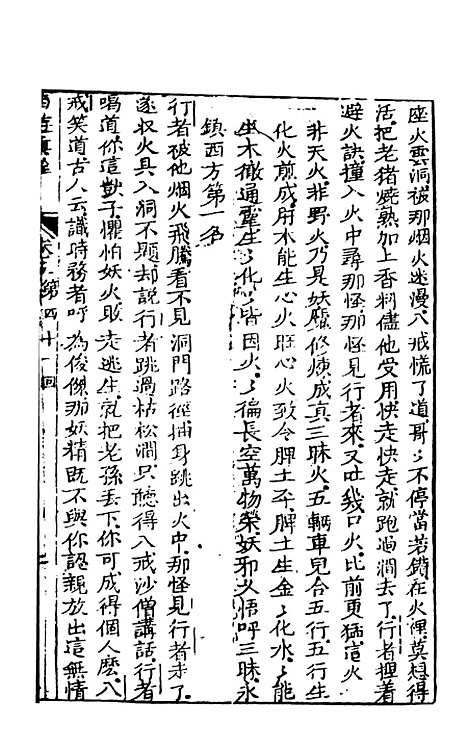 座火雲洞被那烟火迷漫八戒慌了道哥〻不停當若鑽在火裡莫想得
活把老猪燒熟加上香料儘他受用快走快走就跑過澗去了行者捏着
避火訣撞入火中尋那怪那怪見行者來又吐幾口火比前更猛這火
非天火非野火乃是妖魔修煉成真三昧火五輛車兒合五行五行生
化火煎成肝木能生心火旺心火致令脾土平脾土生金〻化水〻能
生木徹通靈生〻化〻皆因火火徧長空萬物榮妖邪久悟呼三昧永
鎮西方第一名
行者被他烟火飛騰看不見洞門路徑抽身跳出火中那怪見行者走了
遂收火具入洞不題却說行者跳過枯松澗只聽得八戒沙僧講話行者
喝道你這獃子懼怕妖火敗走逃生就把老孫丟下你可成得個人麽八
戒笑道古人云識時務者呼為俊傑那妖精既不與你認親放出這無情
第四十一回